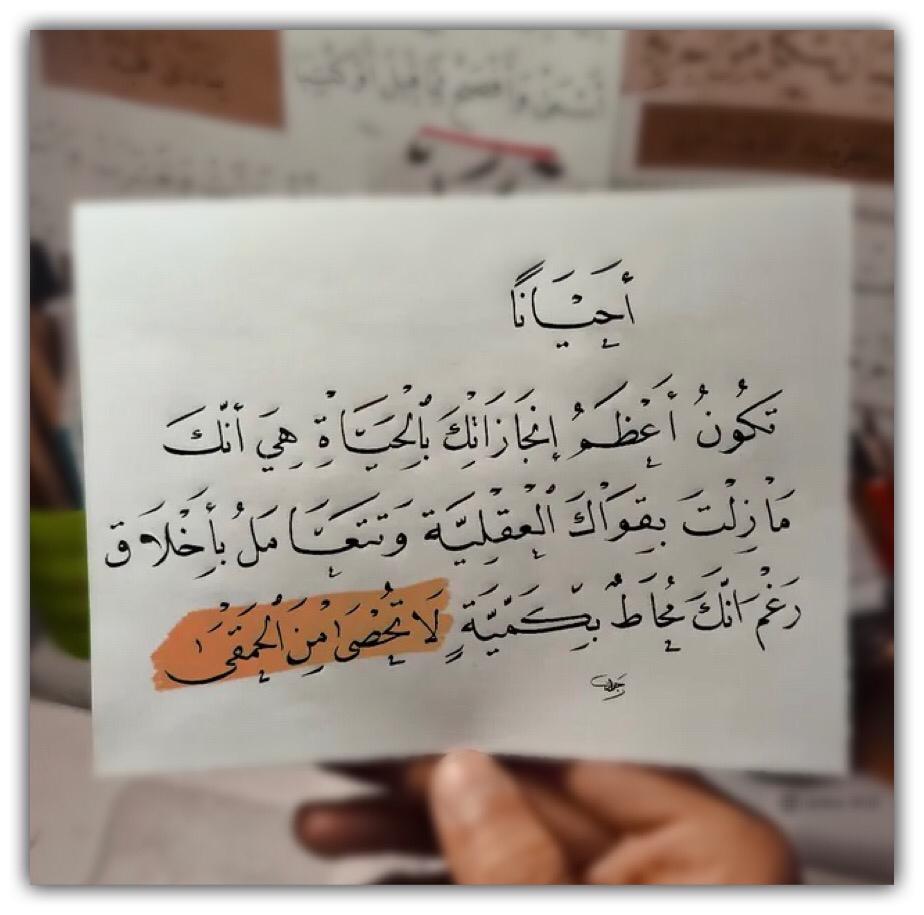 أَحْيَاناً
تَكُونُ أَعْظَمُ إِنْجَازَاتِكَ بِالْحَيَاةِ هِيَ أَنَّكَ
مَازِلْتَ بِقِوَاكَ الْعَقْلِيَّة وَتَتَعَامَلُ بِأَخْلَاق
رَغْمَ انَّكَ مُحَاطٌ بِكَمِّيَّةٍ لَا تُحْصَى مِنَ الْحَمْقَى